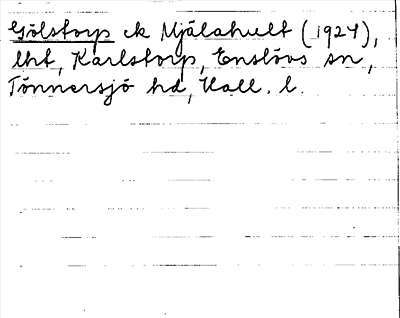 Gölstorp ek Mjälahult (1924),
lht, Karlstorp, Enslövs sn,
Tönnersjö hd, Hall. l.